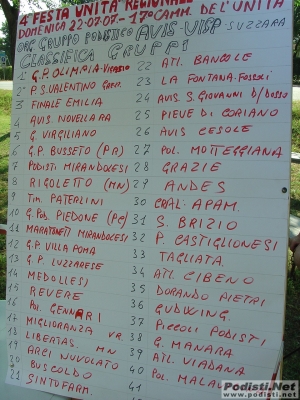 4ª FESTA UNITÀ REGIONALE
DOMENICA 22·07·07· - 17ª CAMM. DELL'UNITÀ
ORG. GRUPPO PODISTICO AVIS-UISP-SUZZARA
CLASSIFICA GRUPPI
1 G.P. OLIMPIA
2 P.S. VALENTINO
3 FINALE EMILIA
4 AVIS NOVELLARA
5 G. VIRGILIANO
6 G.P. BUSSETO (PR)
7 PODISTI MIRANDOLESI
8 RIGOLETTO (MN)
9 TIM. PATERLINI
10 G. POD. PIEDONE
11 MARATONETI MIRANDOLESI
12 G.P. VILLA POMA
13 G.P. LUZZARESE
14 MEDOLLESI
15 REVERE
16 POL. GENNARI
17 MIGLIORANZA VR.
18 LIBERTAS. MN
19 ARCI NUVOLATO
20 BUSCOLDO
21 SINTOFARM.
22 ATL. BANCOLE
23 LA FONTANA-
24 AVIS S. GIOVANNI D/DOSSO
25 PIEVE DI CORIANO
26 AVIS CESOLE
27 POL. MOTTEGGIANA
28 GRAZIE
29 ANDES
30 CRAL. APAM.
31 S. BRIZIO
32 P. CASTIGLIONESI
33 TAGLIATA
34 ATL. CIBENO
35 DORANDO PIETRI
36 GUDWING.
37 PICCOLI PODISTI
38 G. MANARA
39 ATL. VIADANA
40 POL. MALAV
41
Podisti.Net
www.podisti.net